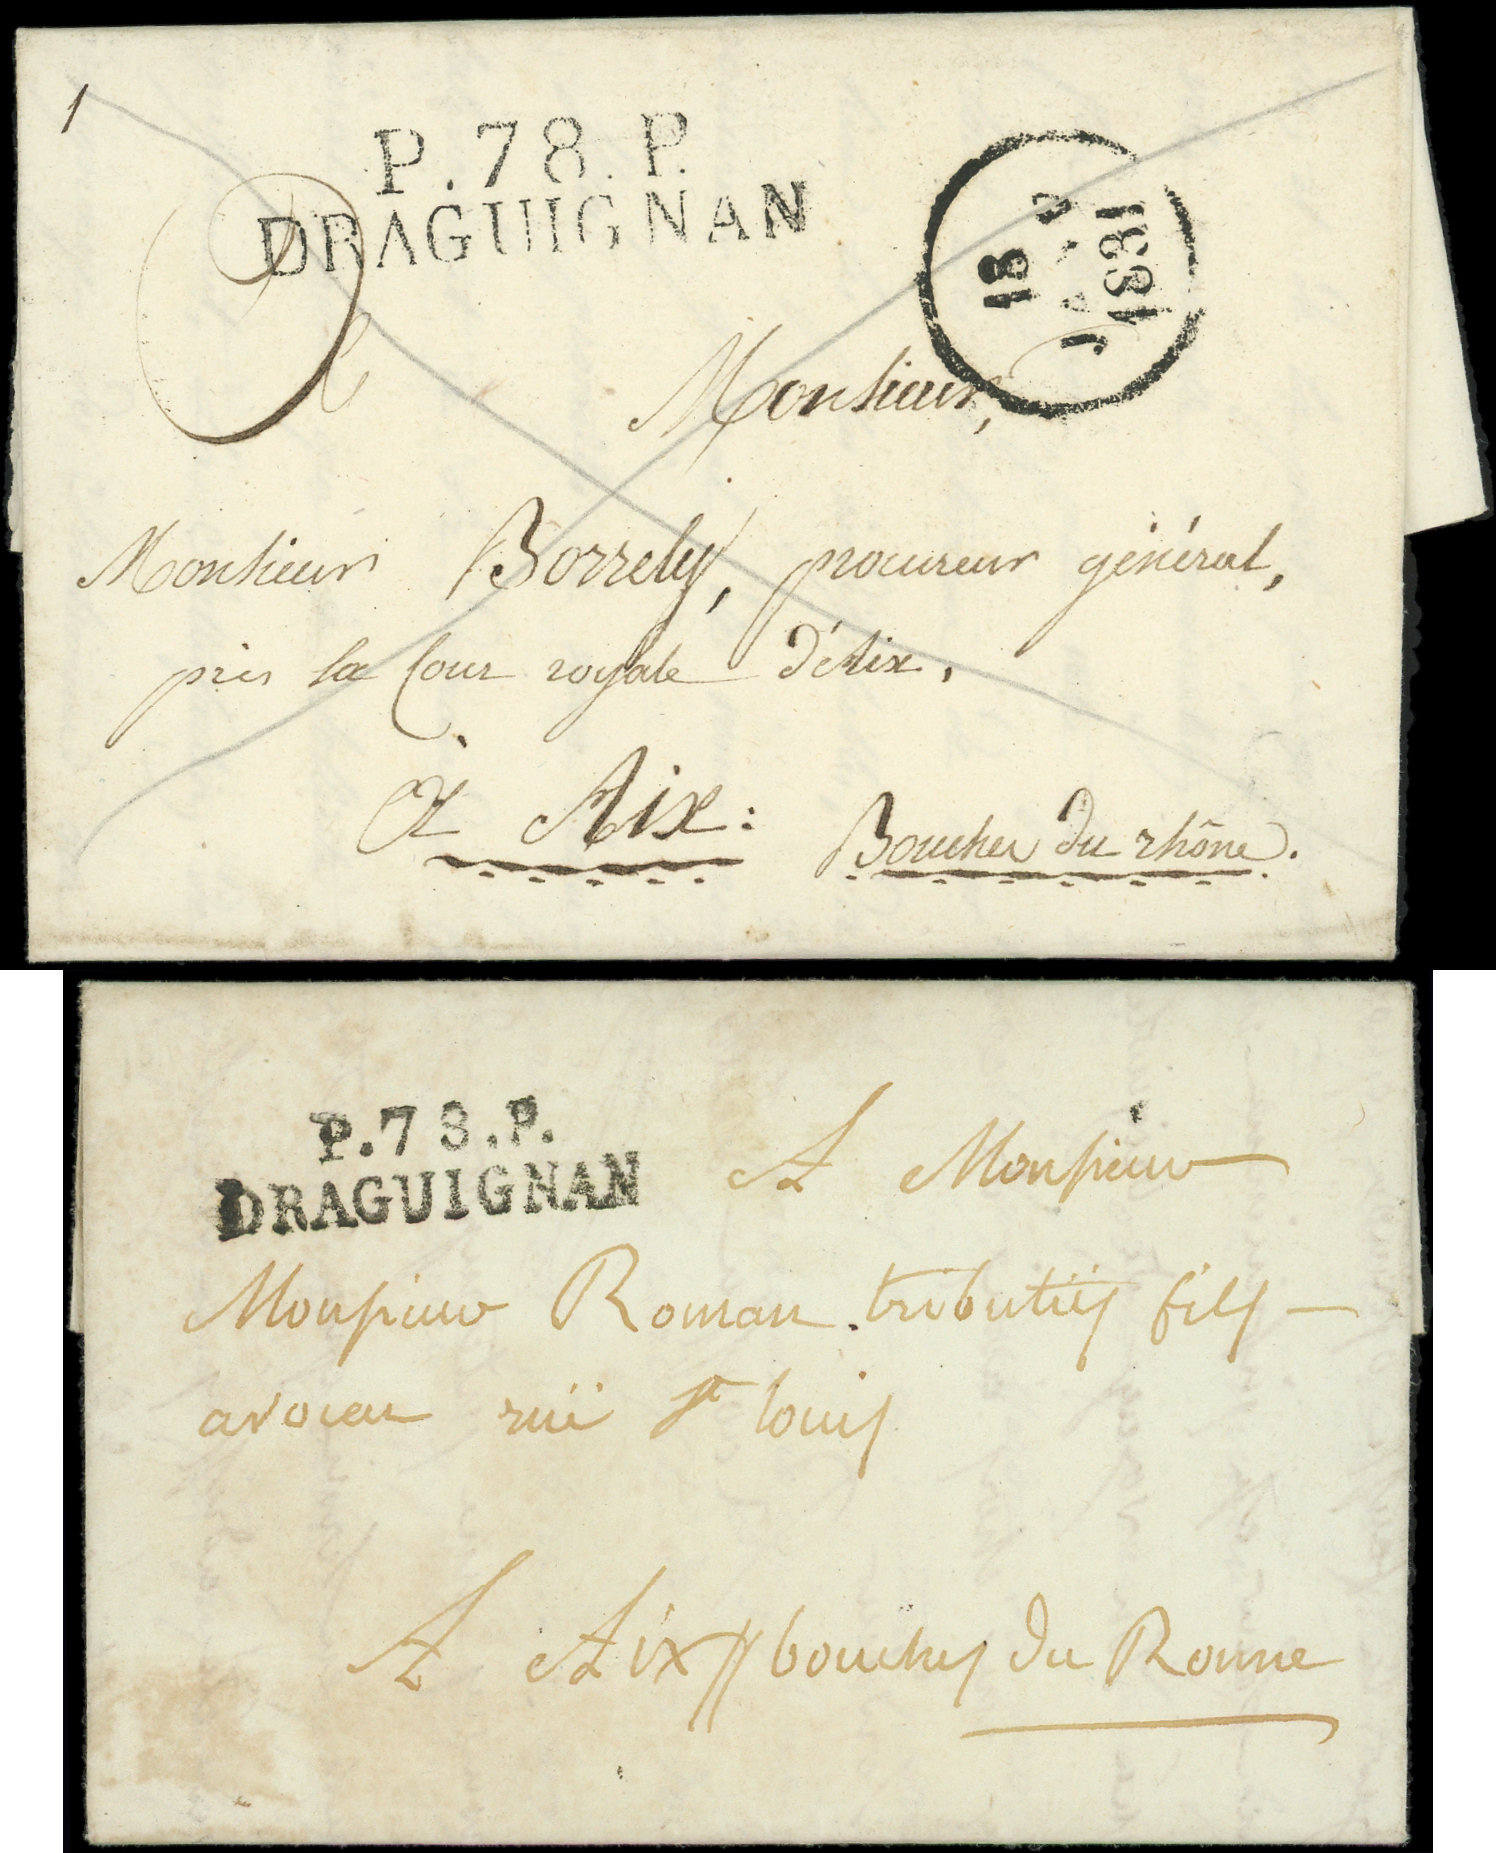 1
P.78.P.
DRAGUIGNAN
18
JANV
1831
Monsieur,
Monsieur Borrely, procureur général,
près la Cour royale d'Aix.
à Aix:
Bouches du rhône.
P.78.P.
DRAGUIGNAN
A Monsieur
Monsieur Roman tributiis fils
avocat rüe St louis
A Aix // bouches du Ronne